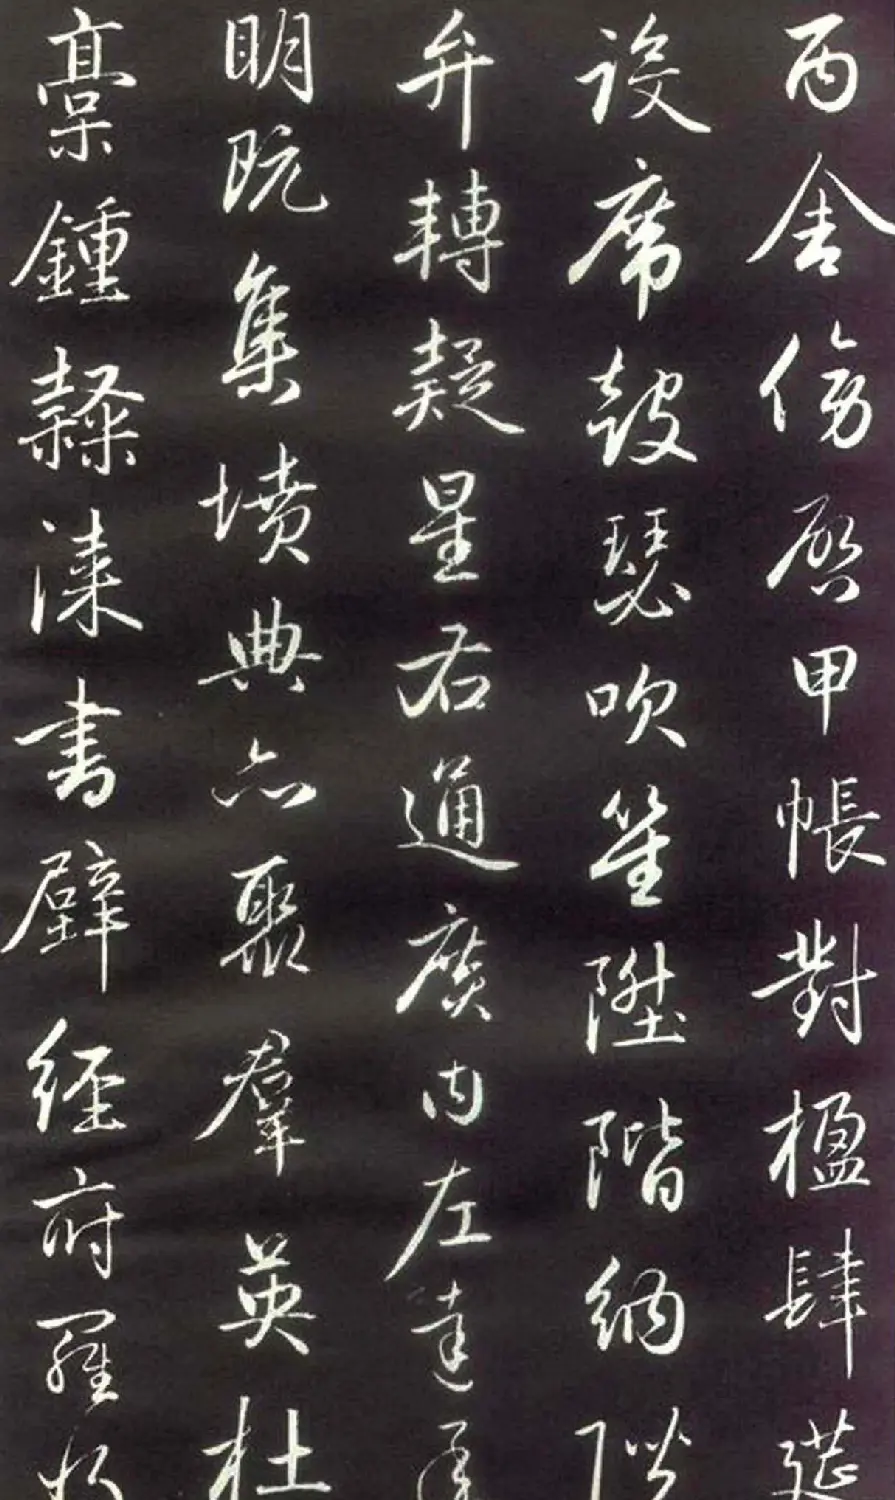 丙舍傍啓甲帳對楹肆筵
設席鼓瑟吹笙陞階納陛
弁轉疑星右通廣内左達承
明既集墳典亦聚羣英杜
稾鍾隸漆書壁經府羅